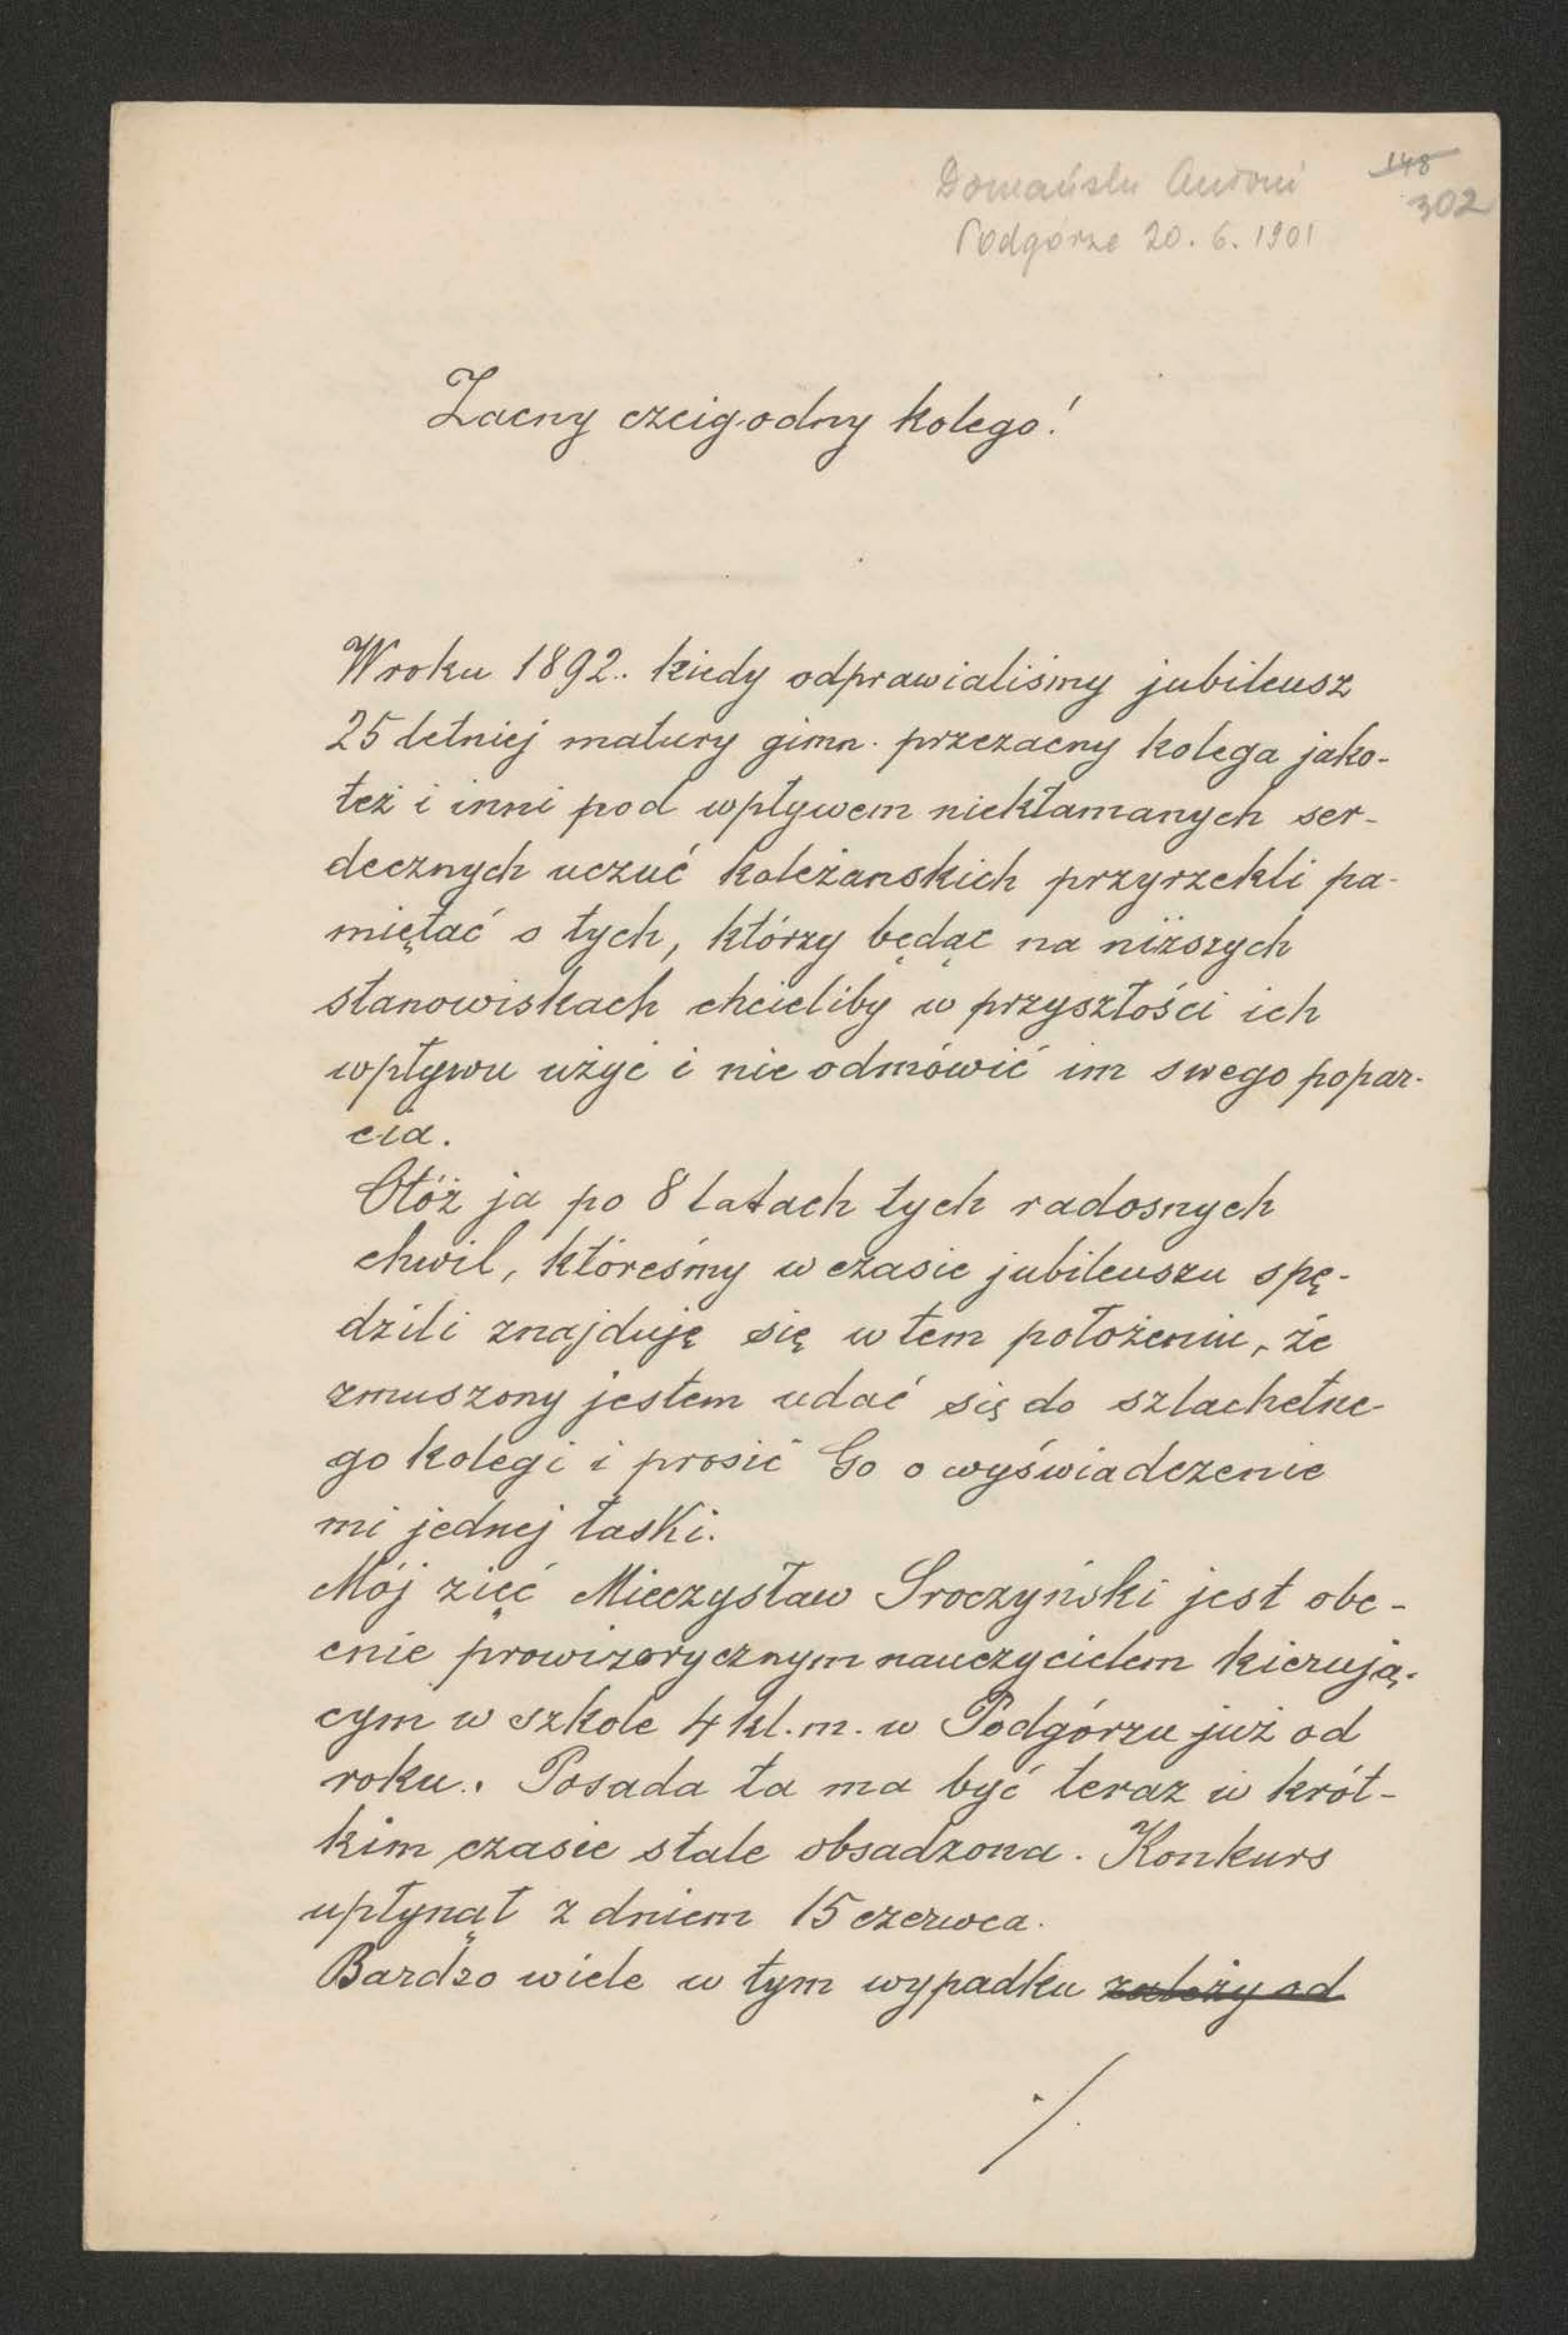 Domański Antoni
Podgórze 20. 6. 1901
148
302
Zacny czcigodny kolego!
W roku 1892.. kiedy odprawialiśmy jubileusz
25 letniej matury gimn. przezacny kolega jako-
też i inni pod wpływem niekłamanych ser-
decznych uczuć koleżanskich przyrzekli pa-
miętać o tych, którzy będąc na niższych
stanowiskach chcieliby w przyszłości ich
wpływu użyć i nie odmówić im swego popar-
cia.
Otóż ja po 8 latach tych radosnych
chwil, któreśmy w czasie jubileuszu spę-
dzili znajduję się w tem położeniu, że
zmuszony jestem udać się do szlachetne-
go kolegi i prosić Go o wyświadczenie
mi jednej łaski.
Mój zięć Mieczysław Sroczyński jest obe-
cnie prowizorycznym nauczycielem kierują-
cym w szkole 4 kl. m. w Podgórzu już od
roku. Posada ta ma być teraz w krót-
kim czasie stale obsadzona. Konkurs
upłynął z dniem 15 czerwca.
Bardzo wiele w tym wypadku zależy od
./.